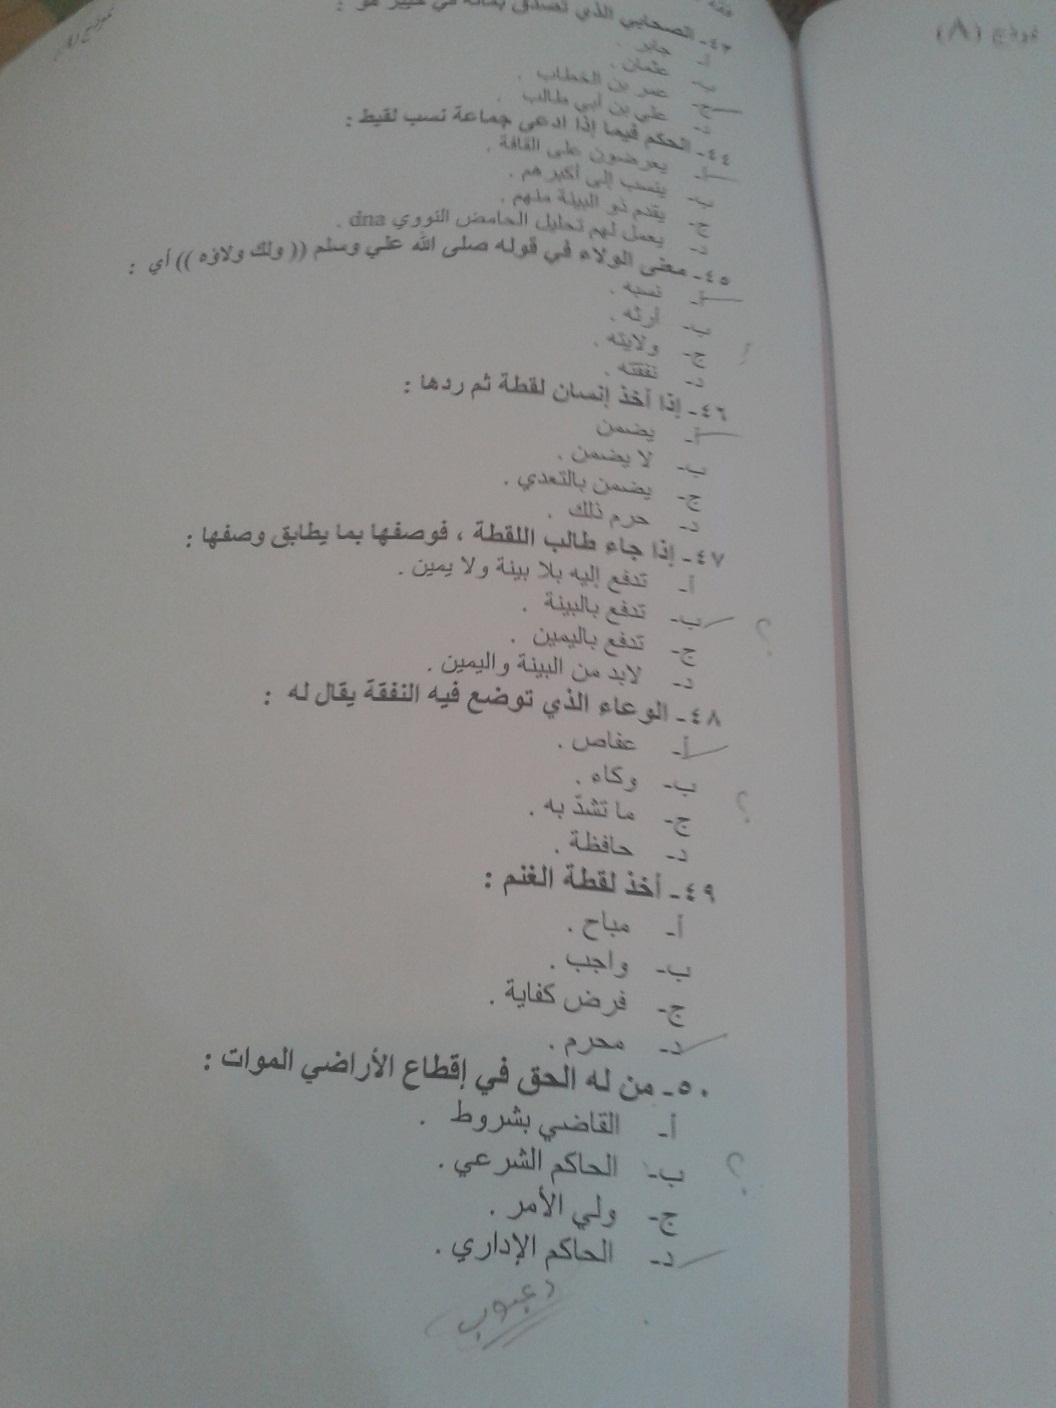 نموذج (٨)
فقه
٤٣- الصحابي الذي تصدق بماله في خيبر هو :
أ- جابر .
ب- عثمان .
ج- عمر بن الخطاب .
د- علي بن أبي طالب .
٤٤- الحكم فيما إذا ادعى جماعة نسب لقيط :
أ- يعرضون على القافة .
ب- ينسب إلى أكبرهم .
ج- يقدم ذو البينة منهم .
د- يعمل لهم تحليل الحامض النووي dna .
٤٥- معنى الولاء في قوله صلى الله علي وسلم (( ولك ولاؤه )) أي :
أ- نسبه .
ب- ارثه .
ج- ولايته .
د- نفقته .
٤٦- إذا أخذ إنسان لقطة ثم ردها :
أ- يضمن
ب- لا يضمن .
ج- يضمن بالتعدي .
د- حرم ذلك .
٤٧- إذا جاء طالب اللقطة ، فوصفها بما يطابق وصفها :
أ- تدفع إليه بلا بينة ولا يمين .
ب- تدفع بالبينة .
؟
ج- تدفع باليمين .
د- لابد من البينة واليمين .
٤٨- الوعاء الذي توضع فيه النفقة يقال له :
أ- عفاص .
ب- وكاء .
؟
ج- ما تشدّ به .
د- حافظة .
٤٩- أخذ لقطة الغنم :
أ- مباح .
ب- واجب .
ج- فرض كفاية .
د- محرم .
٥٠- من له الحق في إقطاع الأراضي الموات :
أ- القاضي بشروط .
ب- الحاكم الشرعي .
؟
ج- ولي الأمر .
د- الحاكم الإداري .
نموذج (٨)